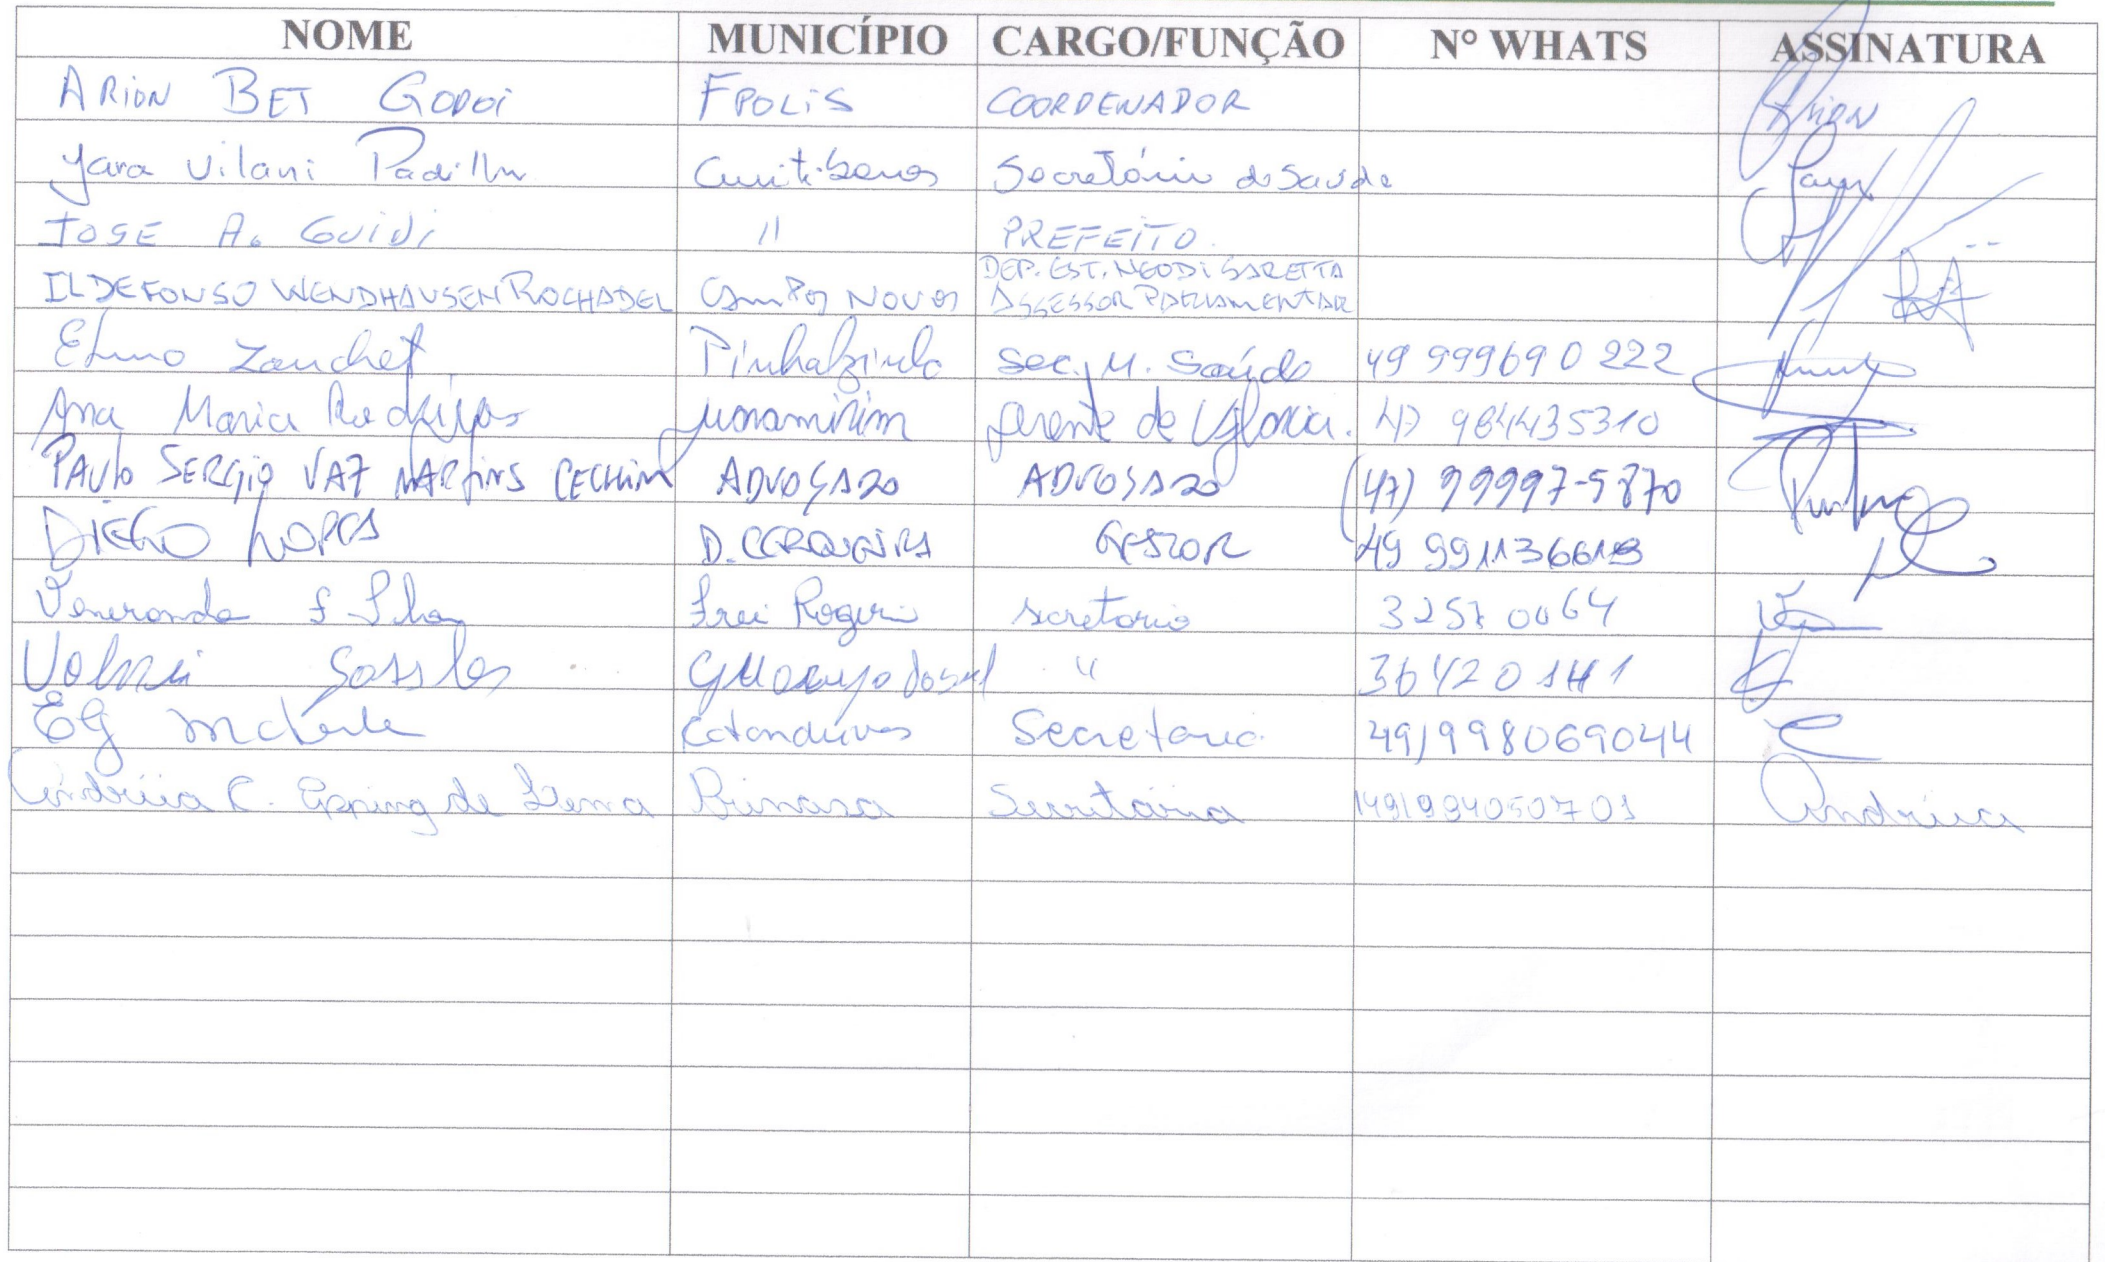 NOME MUNICÍPIO CARGO/FUNÇÃO Nº WHATS ASSINATURA
ARION BET GODOI FPOLIS COORDENADOR Arion
Yara Vilani Padilha Curitibanos Secretária de Saúde
JOSE A. GUIDI 11 PREFEITO
DEP. EST. NEODI SARETTA
ILDEFONSO WENDHAUSEN ROCHADEL Campos Novos ASSESSOR PARLAMENTAR
Elmo Zanchet Pinhalzinho Sec. M. Saúde 49 999690222
Ana Maria Rodrigues Guaramirim Gerente de 47 984435310
PAULO SERGIO VAZ MARTINS CECHIM ADVOGADO ADVOGADO (47) 99997-5870
DIEGO LOPES D. CERQUEIRA GESTOR 49 99113661
Veneranda F Silva Frei Rogerio secretaria 3257 0064
Volnei " 36420141
Catanduvas Secretaria 49/998069044
Andréia C. Epping de Lima Secretária (49)994050701 Andréia